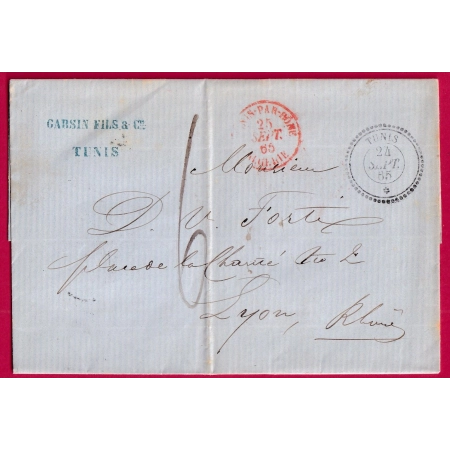 GARSIN FILS & CIE
TUNIS
PAR-BÔNE
25
SEPT.
65
TUNIS
24
SEPT.
65
6
Monsieur
D. V. Forti
place de la Charité No 2
Lyon, Rhône